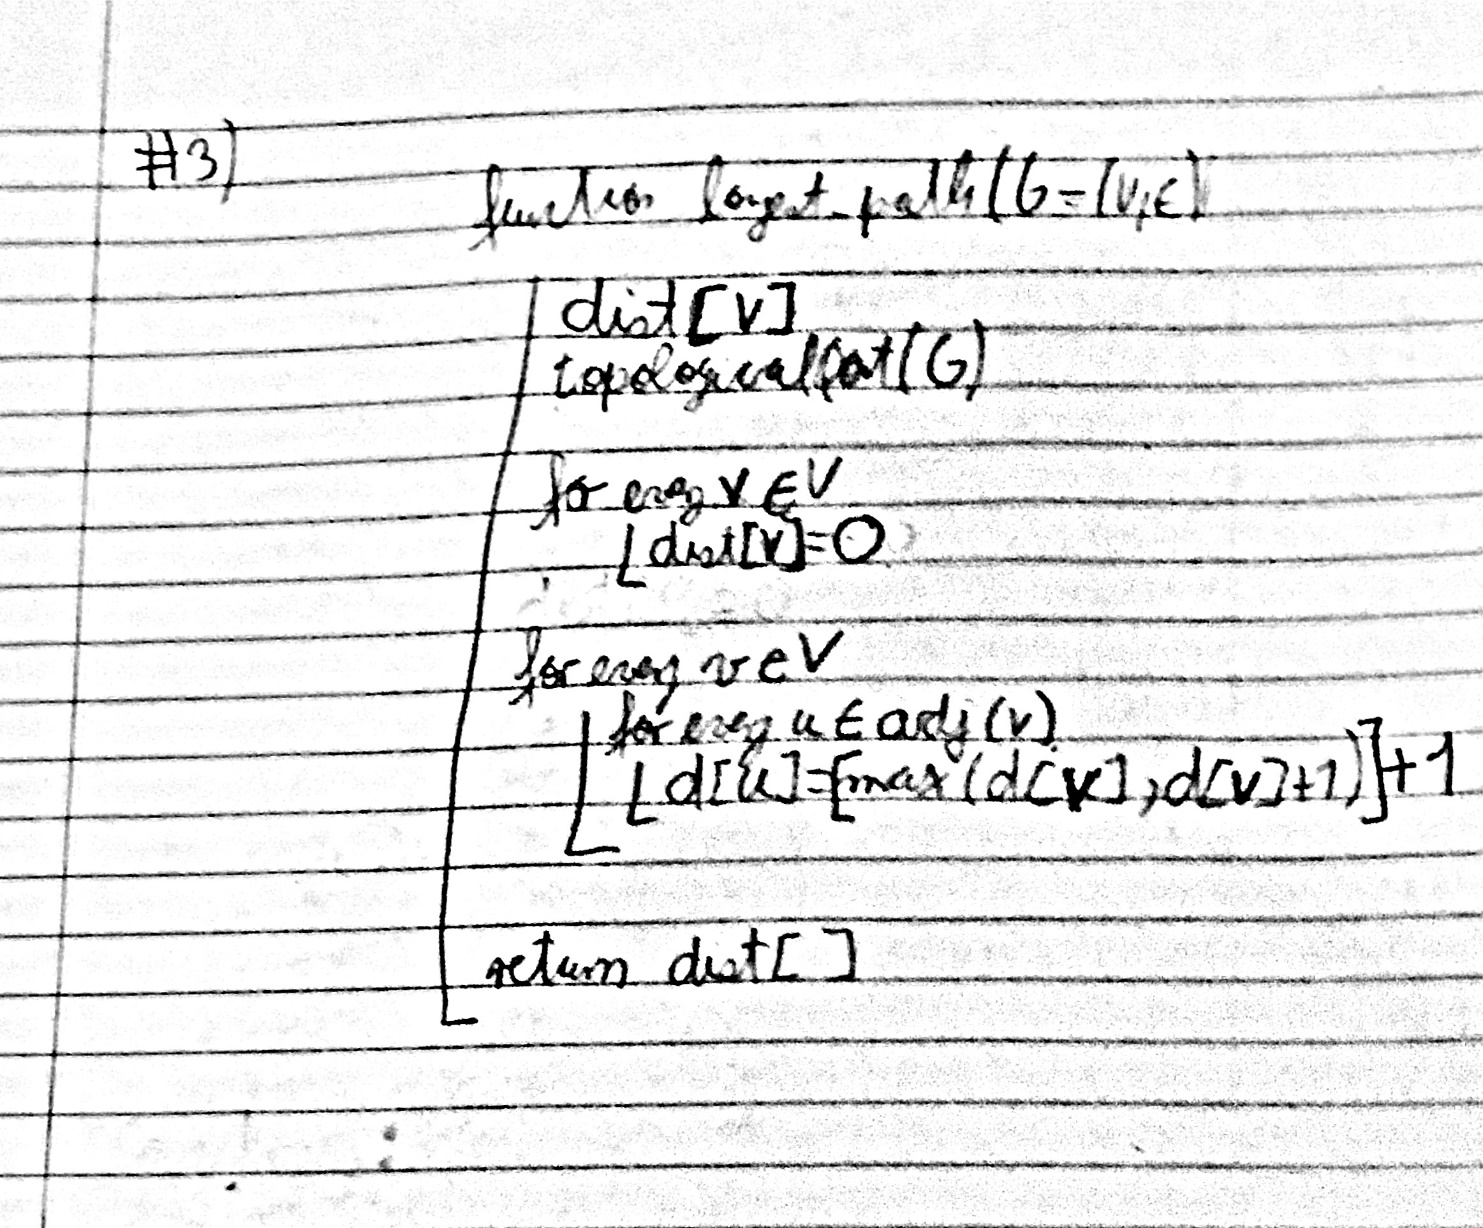 #3)
function longest_path(G=(V,E)
dist[V]
topologicalSort(G)
for every v ∈ V
dist[v]=0
for every v ∈ V
for every u ∈ adj(v)
d[u]=[max(d[v],d[v]+1)]+1
return dist[ ]